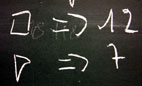 □ => 12
▷ => 7